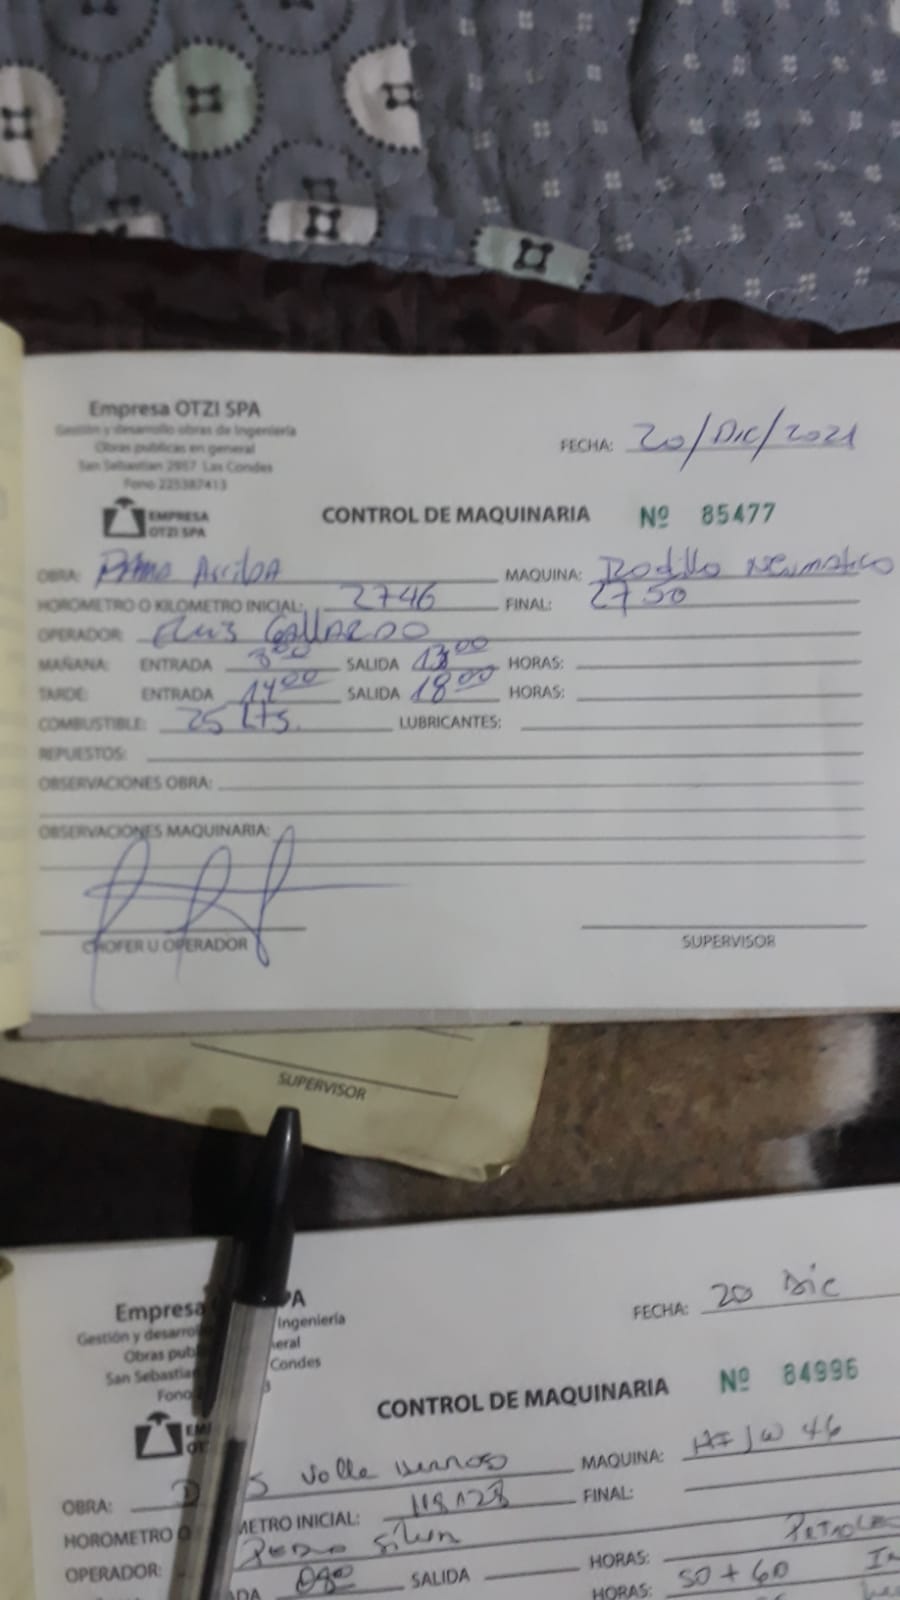 Empresa OTZI SPA
Gestión y desarrollo obras de Ingeniería
Obras publicas en general
San Sebastian 2957 Las Condes
Fono 225387413
FECHA: 20/Dic/2021
EMPRESA
OTZI SPA
CONTROL DE MAQUINARIA Nº 85477
OBRA: Arriba MAQUINA: Rodillo Neumatico
HOROMETRO O KILOMETRO INICIAL: 2746 FINAL: 2750
OPERADOR: GALLARDO
MAÑANA: ENTRADA 8:00 SALIDA 13:00 HORAS:
TARDE: ENTRADA 14:00 SALIDA 18:00 HORAS:
COMBUSTIBLE: 25 Lts. LUBRICANTES:
REPUESTOS:
OBSERVACIONES OBRA:
OBSERVACIONES MAQUINARIA:
CHOFER U OPERADOR SUPERVISOR
SUPERVISOR
Empresa PA
Gestión y desarrol Ingeniería
Obras pub eral
San Sebastia Condes
Fono 3
FECHA: 20 Dic
CONTROL DE MAQUINARIA Nº 84996
OBRA: Valle MAQUINA: 46
HOROMETRO METRO INICIAL: FINAL:
OPERADOR: Pedro Silva
DA SALIDA HORAS:
HORAS: 50 + 60